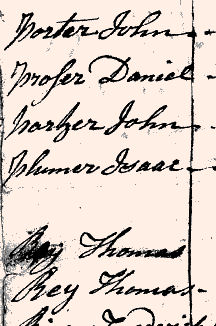 Porter John
Profer Daniel
Parker John
Plumer Isaac
Rey Thomas
Rey Thomas